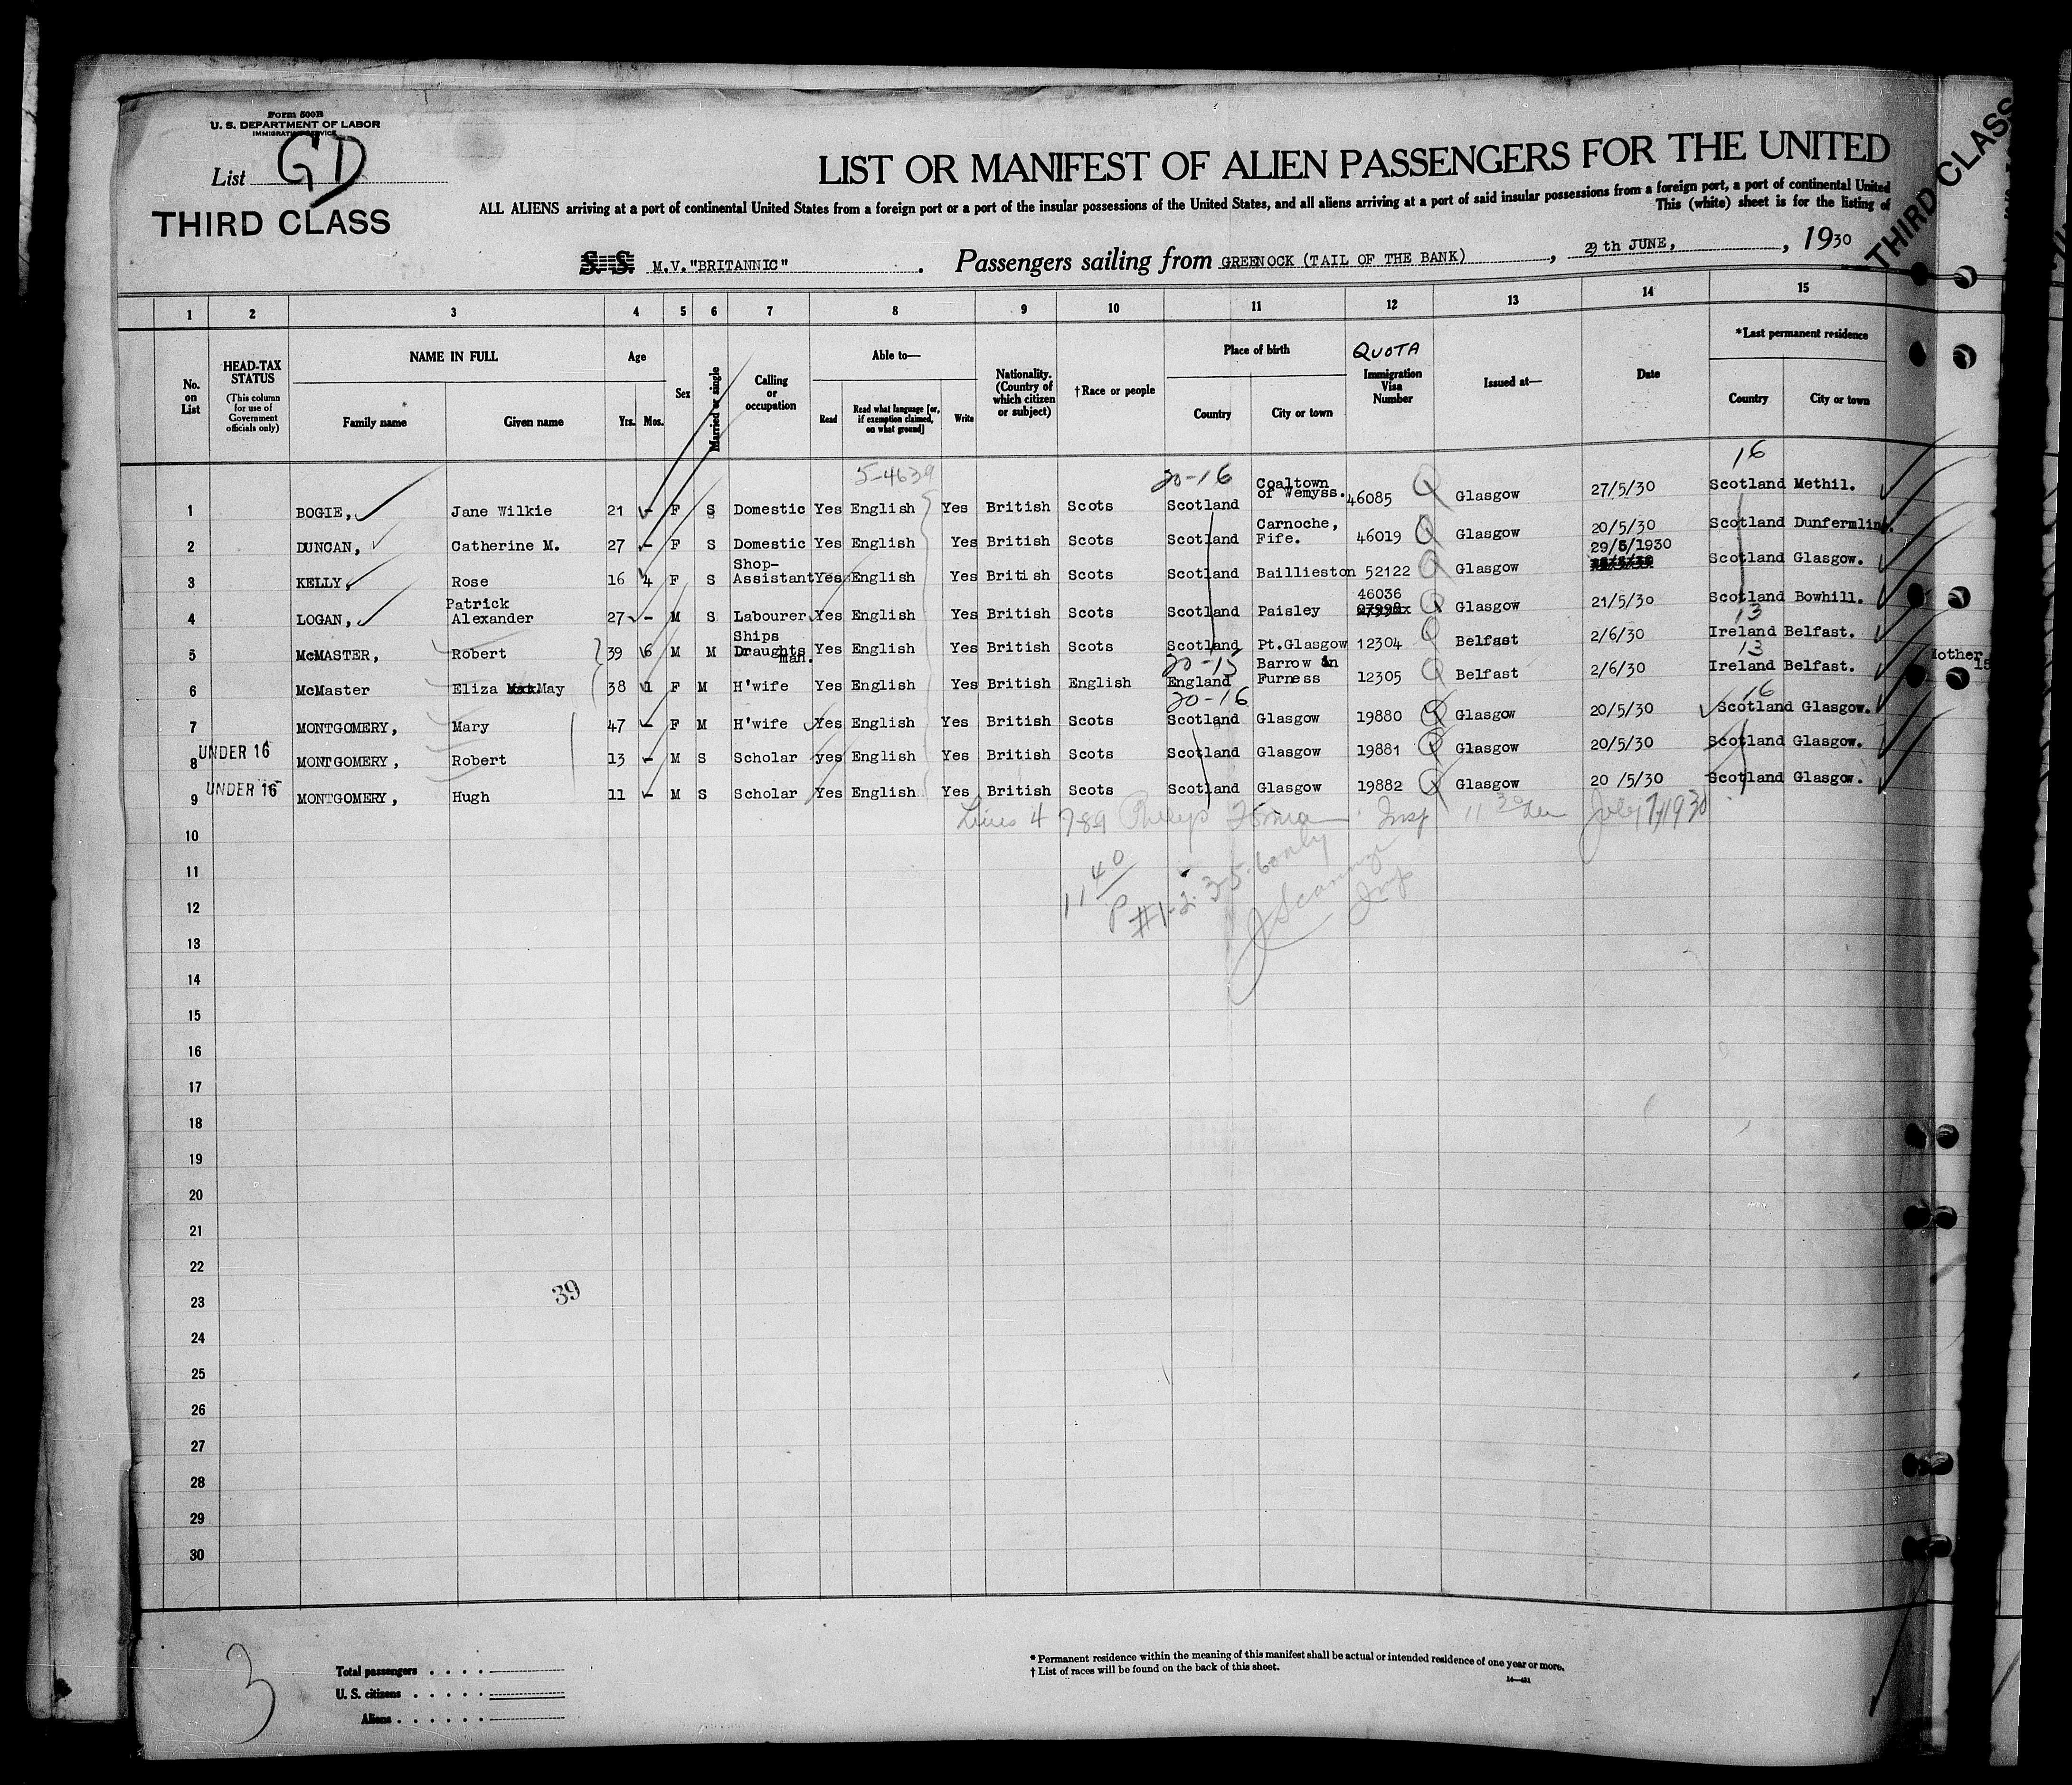 Form 500B
U. S. DEPARTMENT OF LABOR
IMMIGRATION SERVICE
List GD
THIRD CLASS
LIST OR MANIFEST OF ALIEN PASSENGERS FOR THE UNITED
ALL ALIENS arriving at a port of continental United States from a foreign port or a port of the insular possessions of the United States, and all aliens arriving at a port of said insular possessions from a foreign port, a port of continental United
This (white) sheet is for the listing of
THIRD CLASS
S. S. M.V."BRITANNIC". Passengers sailing from GREENOCK (TAIL OF THE BANK), 29th JUNE, , 1930
1 2 3 4 5 6 7 8 9 10 11 12 13 14 15
No. on List
HEAD-TAX STATUS (This column for use of Government officials only)
NAME IN FULL Family name Given name
Age Yrs. Mos.
Sex
Married or single
Calling or occupation
Able to— Read Read what language [or, if exemption claimed, on what ground] Write
Nationality. (Country of which citizen or subject)
†Race or people
Place of birth Country City or town
QUOTA Immigration Visa Number
Issued at—
Date
*Last permanent residence Country City or town
5-4639 20-16 16
1 BOGIE, Jane Wilkie 21 - F S Domestic Yes English Yes British Scots Scotland Coaltown of Wemyss. 46085 Q Glasgow 27/5/30 Scotland Methil.
2 DUNCAN, Catherine M. 27 - F S Domestic Yes English Yes British Scots Scotland Carnoche, Fife. 46019 Q Glasgow 20/5/30 Scotland Dunfermline.
3 KELLY, Rose 16 4 F S Shop-Assistant Yes English Yes British Scots Scotland Baillieston 52122 Q Glasgow 29/5/1930 Scotland Glasgow.
4 LOGAN, Patrick Alexander 27 - M S Labourer Yes English Yes British Scots Scotland Paisley 46036 Q Glasgow 21/5/30 Scotland Bowhill.
13
5 McMASTER, Robert 39 6 M M Ships Draughtsman. Yes English Yes British Scots Scotland Pt.Glasgow 12304 Q Belfast 2/6/30 Ireland Belfast.
20-15 13
6 McMaster Eliza May 38 1 F M H'wife Yes English Yes British English England Barrow in Furness 12305 Q Belfast 2/6/30 Ireland Belfast.
Mother
15
20-16 16
7 MONTGOMERY, Mary 47 - F M H'wife Yes English Yes British Scots Scotland Glasgow 19880 Q Glasgow 20/5/30 Scotland Glasgow.
UNDER 16
8 MONTGOMERY, Robert 13 - M S Scholar yes English Yes British Scots Scotland Glasgow 19881 Q Glasgow 20/5/30 Scotland Glasgow.
UNDER 16
9 MONTGOMERY, Hugh 11 - M S Scholar Yes English Yes British Scots Scotland Glasgow 19882 Q Glasgow 20 /5/30 Scotland Glasgow.
Lines 4 789 Insp 11 30 July 7/1930
10
11
11 40 P #1-2-3-5-6 only
12
Insp
13
14
15
16
17
18
19
20
21
22
39
23
24
25
26
27
28
29
30
3
Total passengers
U. S. citizens
Aliens
* Permanent residence within the meaning of this manifest shall be actual or intended residence of one year or more.
† List of races will be found on the back of this sheet.
14—431